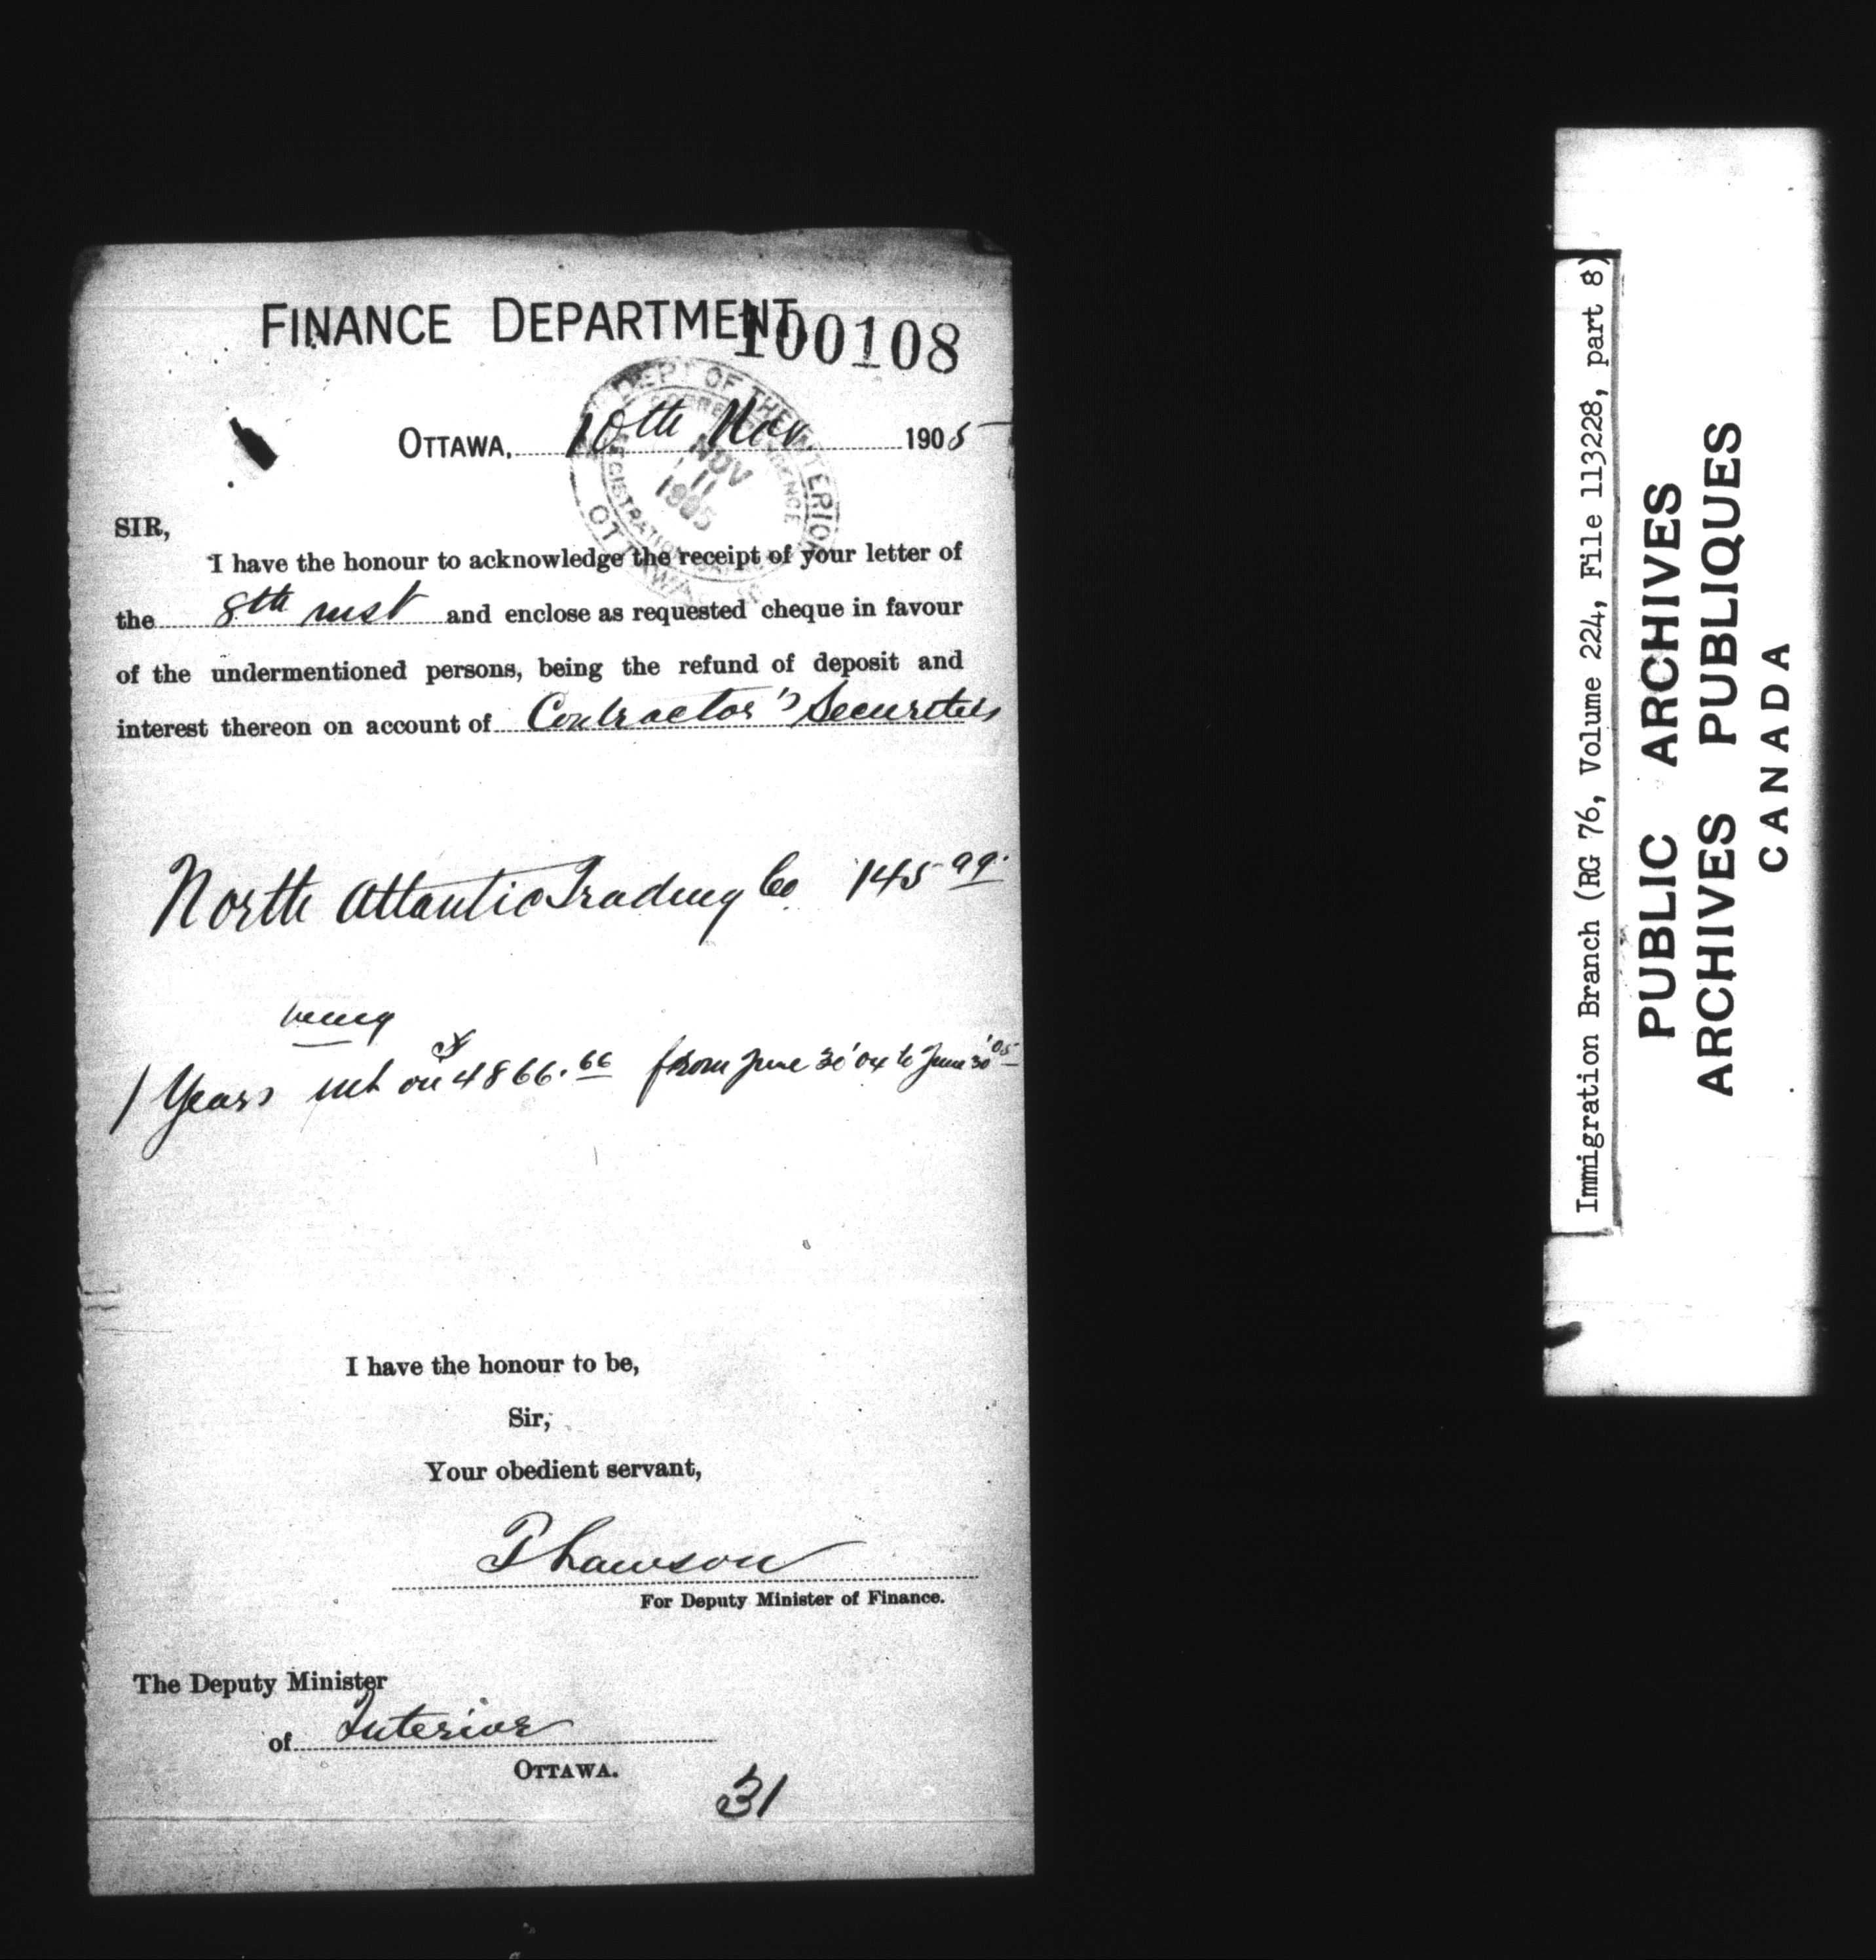 FINANCE DEPARTMENT.
100108
DEPT OF THE INTERIOR
CORRESPONDENCE
NOV
11
1905
REGISTRATION
OTTAWA
OTTAWA, 10th Nov 1905
SIR,
I have the honour to acknowledge the receipt of your letter of
the 8th inst and enclose as requested cheque in favour
of the undermentioned persons, being the refund of deposit and
interest thereon on account of Contractor's Securities
North Atlantic Trading Co 145 99
being
1 Years int on $4866.66 from June 30 '04 to June 30 '05
I have the honour to be,
Sir,
Your obedient servant,
For Deputy Minister of Finance.
The Deputy Minister
of Interior
OTTAWA.
31
Immigration Branch (RG 76, Volume 224, File 113228, part 8)
PUBLIC ARCHIVES
ARCHIVES PUBLIQUES
CANADA